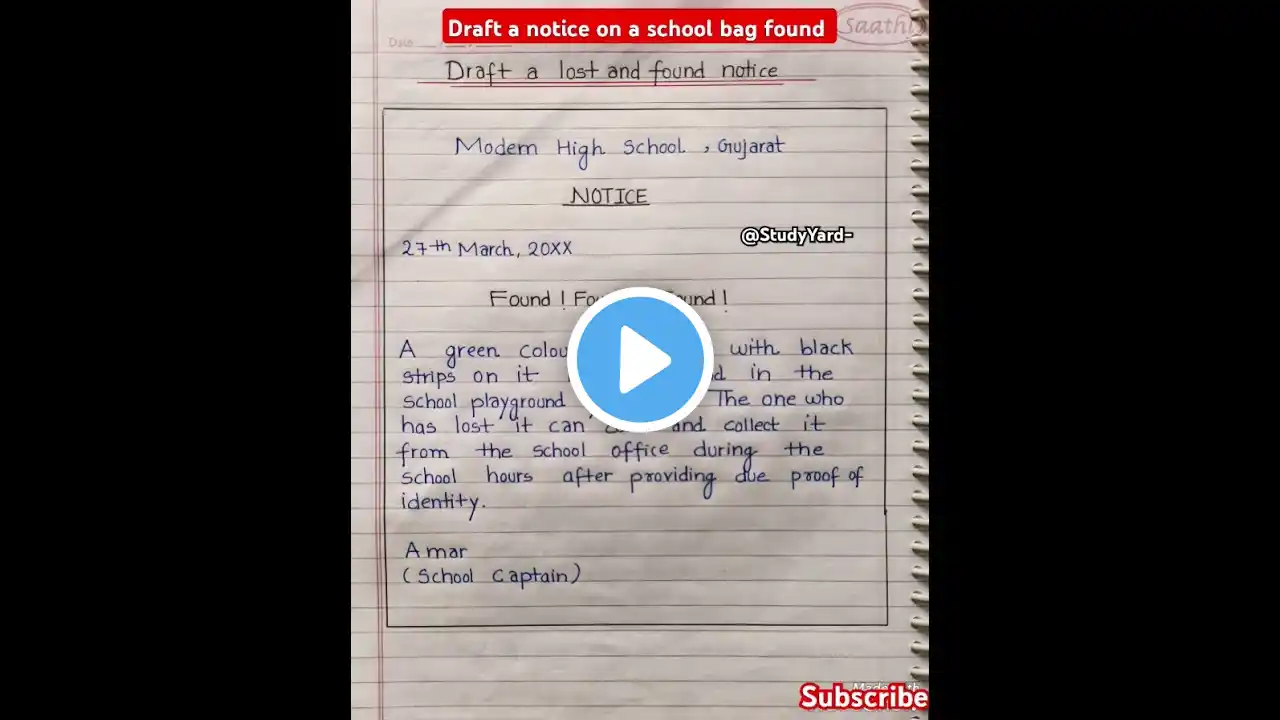 Draft a notice on a school bag found
Saathi
Date
Draft a lost and found notice
Modern High School , Gujarat
NOTICE
@StudyYard-
27th March, 20XX
Found ! Found !
A green colou with black
strips on it in the
school playground The one who
has lost it can and collect it
from the school office during the
school hours after providing due proof of
identity.
Amar
(School Captain)
Subscribe